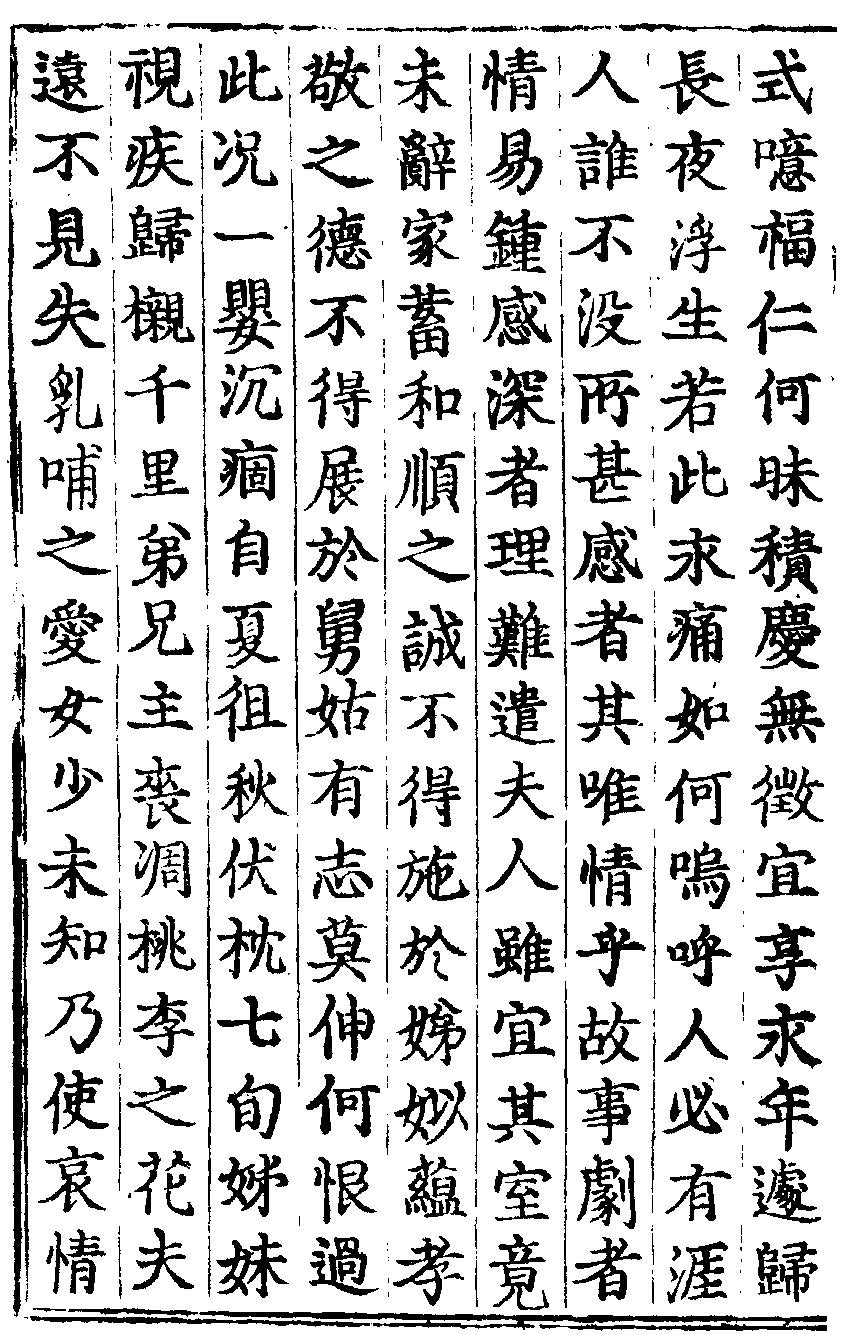 式噫福仁何昧積慶無徵宜享永年遽歸
長夜浮生若此永痛如何嗚呼人必有涯
人誰不没所甚感者其唯情乎故事劇者
情易鍾感深者理難遣夫人雖宜其室竟
未辭家蓄和順之誠不得施於娣姒蘊孝
敬之德不得展於舅姑有志莫伸何恨過
此况一嬰沉痼自夏徂秋伏枕七旬姊妹
視疾歸櫬千里弟兄主喪凋桃李之花夫
遠不見失乳哺之愛女少未知乃使哀情